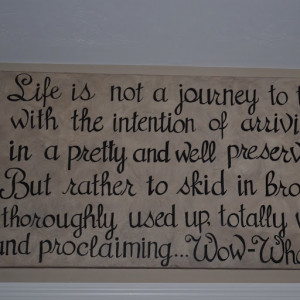 Life is not a journey to t
with the intention of arrivi
in a pretty and well preserv
But rather to skid in bro
thoroughly used up, totally w
and proclaiming...Wow-Wha